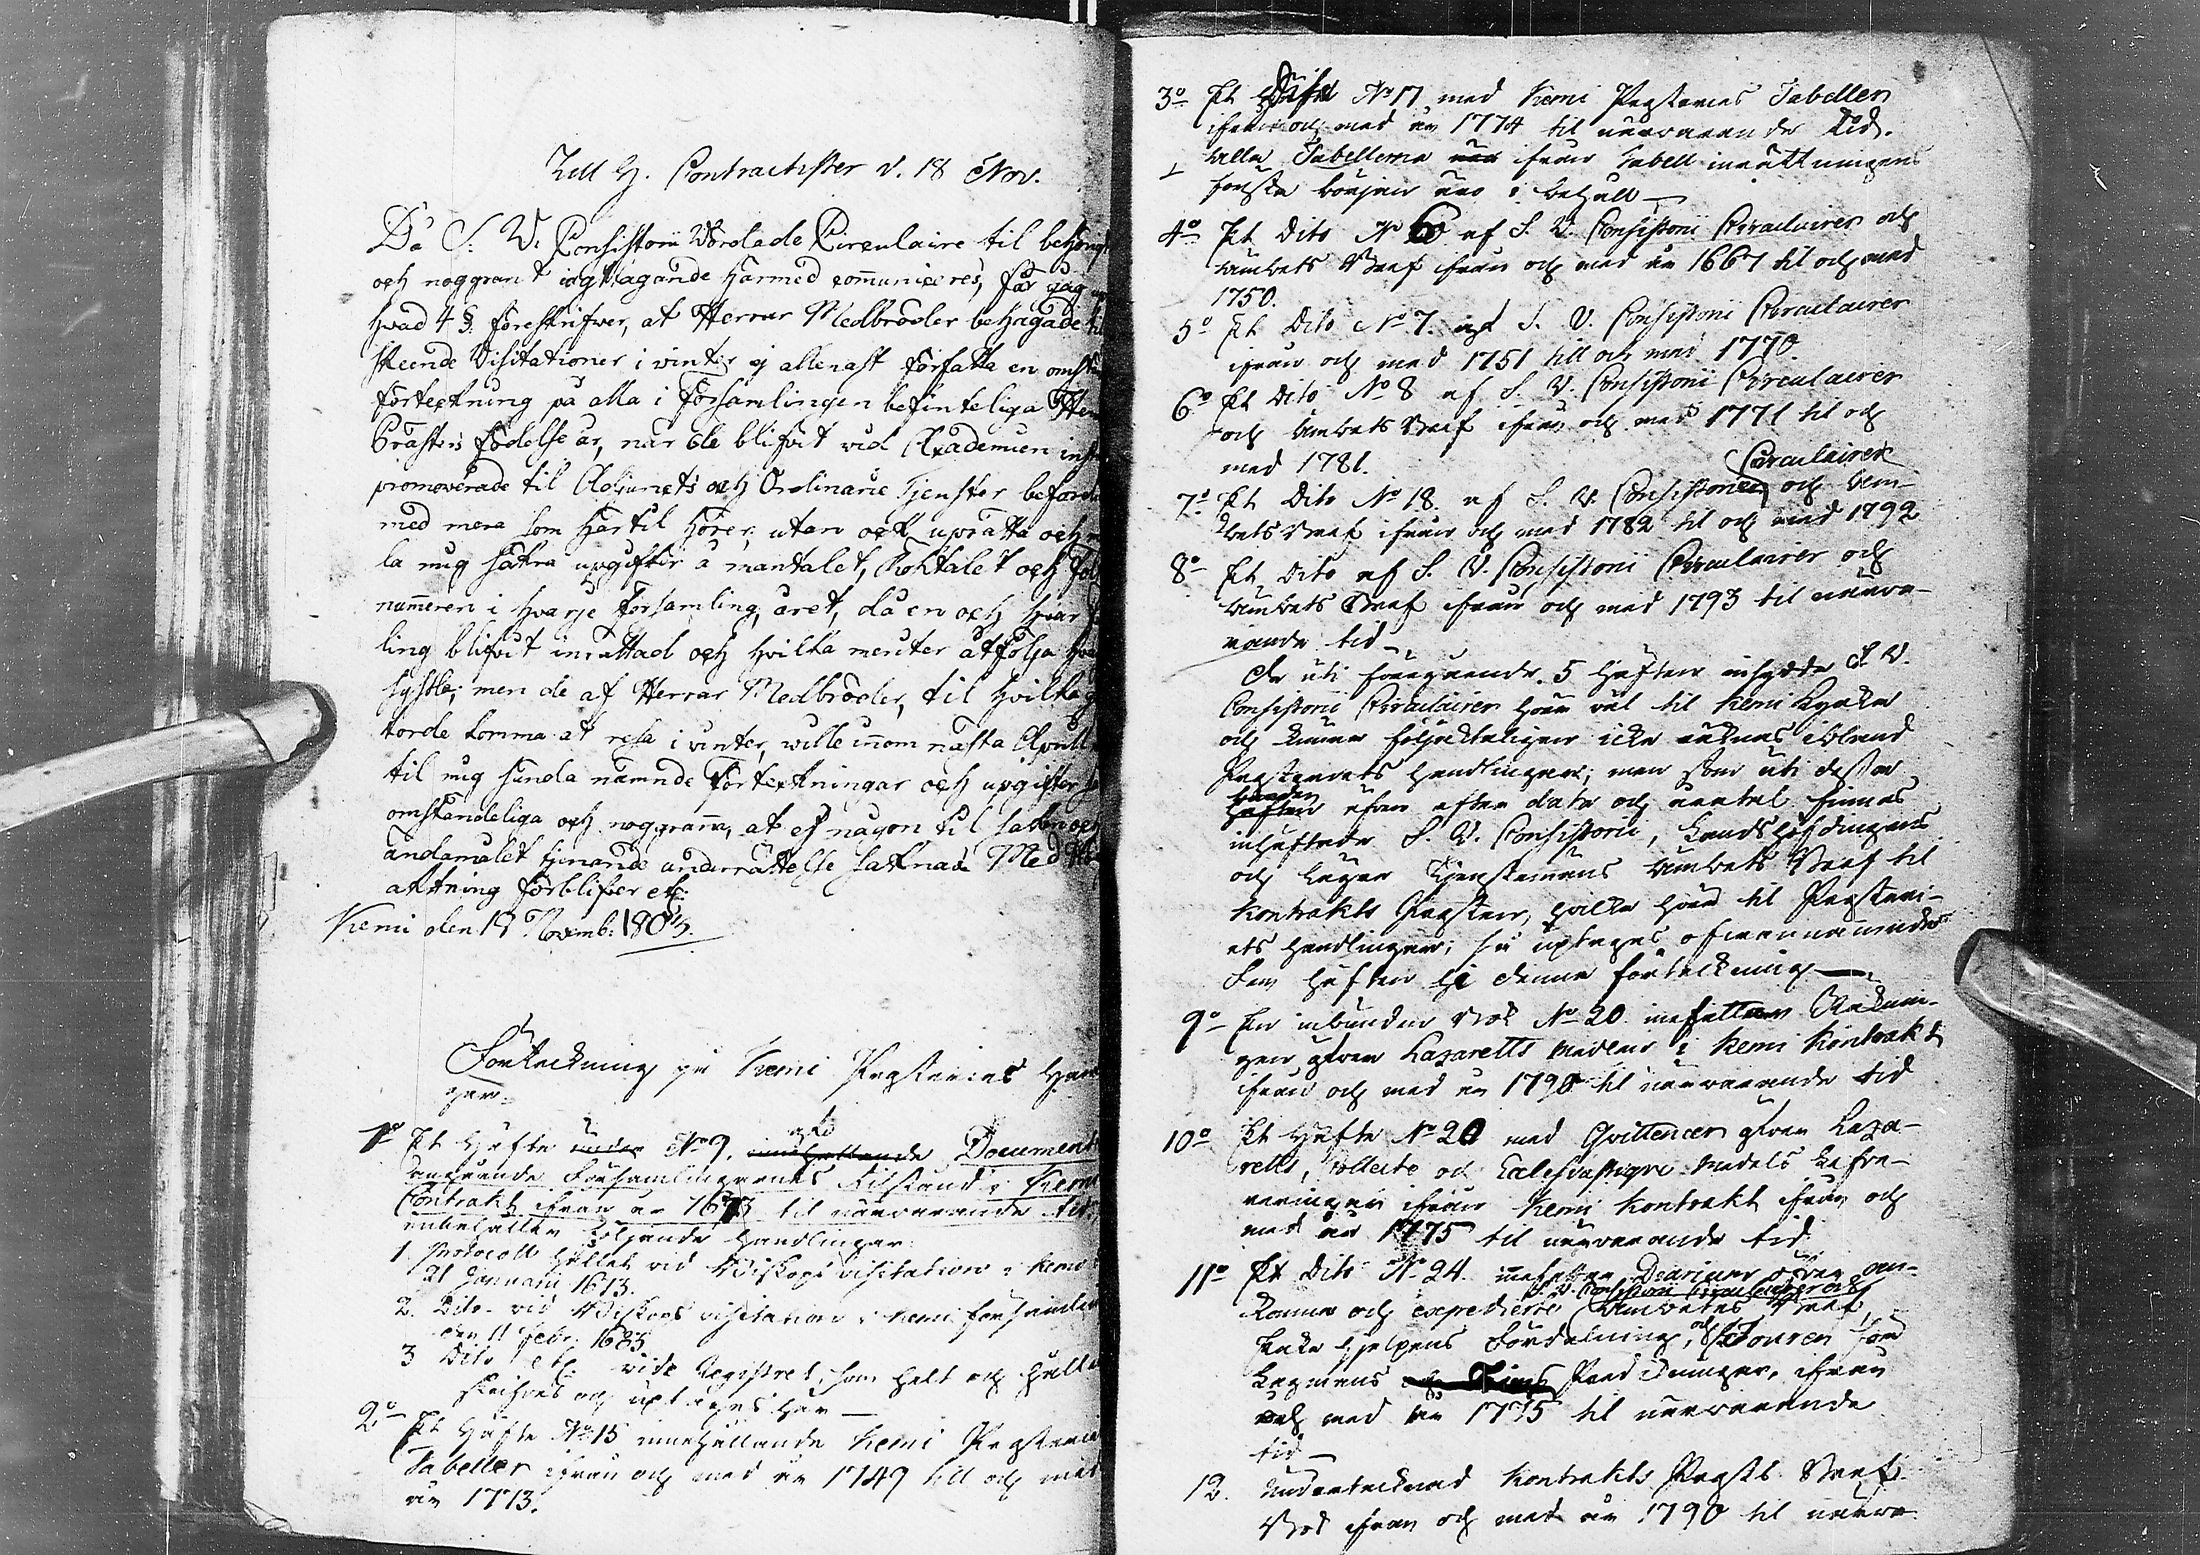 Till H. Contractister d. 18 Nov.
Då S. V. Consistorii Wördade Circulaire til behörig
och noggrant iagttagande härmed communiceres, får jag
hvad 4 §. föreskrifwer, at Herrar Medbröder behagade
skeende Visitationer i vinter ej allenast författa en
förteckning på alla i församlingen befinteliga
Prästers födelse år, när de blifvit vid Academien
promoverade til Adjuncts och Ordinarie Tjenster
med mera som härtil hörer, utan ock uprätta och
la mig säkra upgifter å mantalet, Röktalet och
numeren i hvarje församling, året, då en och hvar
ling blifvit inrättad och hvilka meriter åtfölja
syssla; men de af Herrar Medbröder, til hvilka
torde komma at resa i vinter, wille inom nästa April
til mig sända nämnde Förteckningar och upgifter
omständeliga och noggranna, at ej någon til saken och
ändamålet tjenande underrättelse saknas Med
aktning förblifver etc.
Kemi den 19 Novemb. 1804.
Förteckning på Kemi Prosteries
gar.
1o Et Häfte No 9. Document
angående Församlingarnes Tilstånd i Kemi
Contrakt ifrån år 1673 til närvarande tid,
innehåller följande Handlingar:
1 Protocoll hållet vid Biskops visitation i Kemi
21 Januarii 1673.
2. Dito vid Biskops visitation i Kemi församling
den 11 Febr. 1685
3 Dito etc. vide Registret, som helt och hållit
skrifves och uptages här —
2o Et Häfte No 15 innehållande Kemi Prosteries
Tabeller ifrån och med år 1749 till och med
år 1773.
3o Et Häfte No 17 med Kemi Prosteries Tabeller
ifrån och med år 1774 til närvarande Tid.
Alla Tabellerna ifrån Tabell inrättningens
första början äro i behåll —
4o Et Dito No 6 af S. V. Consistorii Circulairer och
Embets Bref ifrån och med år 1667 til och med
1750.
5o Et Dito No 7. af S. V. Consistorii Circulairer
ifrån och med 1751 till och med 1770.
6o Et Dito No 8 af S. V. Consistorii Circulairer
och Embets Bref ifrån och med 1771 til och
med 1781.
Circulairer
7o Et Dito No 18. af S. V. Consistorii och Em-
bets Bref ifrån och med 1782 til och med 1792
8o Et Dito af S. V. Consistorii Circulairer och
Embets Bref ifrån och med 1793 til närva-
rande tid —
De uti föregående 5 Häften införde S. V.
Consistorii Circulairer höra väl til Kemi Kyrka
och kunna följackteligen icke räknas ibland
Prosteriets Handlingar; men som uti dessa
Häften äfven efter data och årtal finnas
inhäftade S. V. Consistorii, Landshöfdingens
och Tjenstemäns Embets Bref til
Kontrakts Prosten, hvilka höra til Prosteri-
ets Handlingar; så uptages ofvannämnde
Fem Häften i denna förteckning —
9o En inbunden Bok No 20 innefattar Räknin-
gar öfver Lazaretts medlen i Kemi Kontrakt
ifrån och med år 1790 til närvarande tid
10o Et Häfte No 20 med Qvittencer öfver Laza-
retts, Collecte och Ecclesiastique Medels lefre-
reringen ifrån Kemi Kontrakt ifrån och
med år 1775 til närvarande tid.
11o Et Dito No 24. innefattar Diarium öfver an-
S. V. Consistorii Circulairer och
komne och expedierte Embetes Bref,
Fördelning, och Touren för
Predikningar, ifrån
och med år 1775 til närvarande
tid —
12. Undertecknad Kontrakts Prosts Bref
Bok ifrån och med år 1790 til närva-